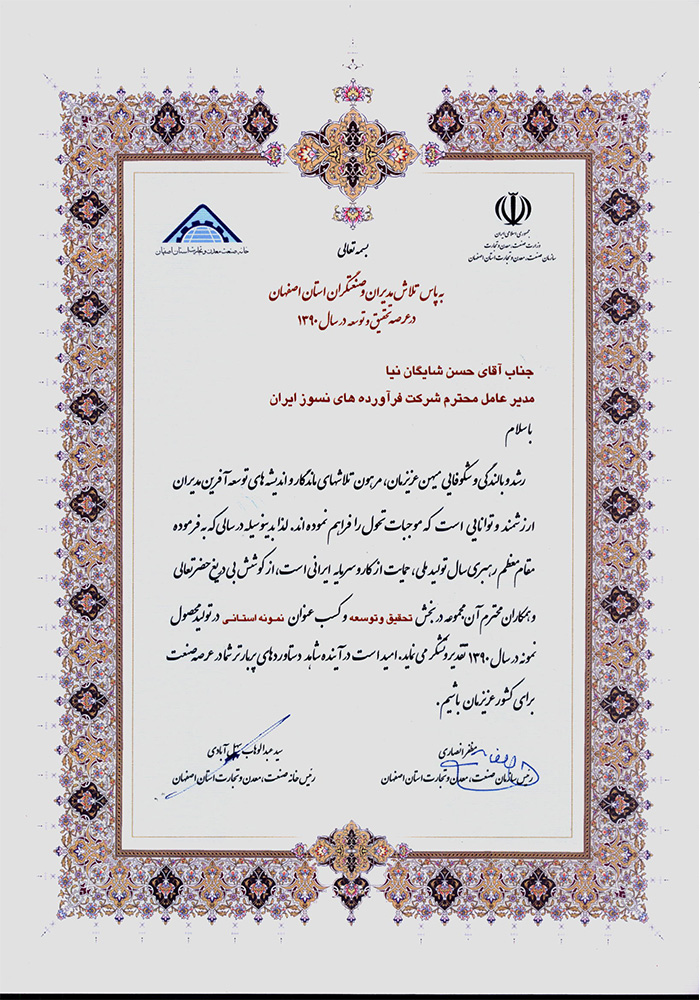 جمهوری اسلامی ایران
وزارت صنعت، معدن و تجارت
سازمان صنعت، معدن و تجارت استان اصفهان
خانه صنعت، معدن و تجارت استان اصفهان
بسمه تعالی
به پاس تلاش مدیران و صنعتگران استان اصفهان
در عرصه تحقیق و توسعه در سال ۱۳۹۰
جناب آقای حسن شایگان نیا
مدیر عامل محترم شرکت فرآورده های نسوز ایران
با سلام
رشد و بالندگی و شکوفایی میهن عزیزمان، مرهون تلاشهای ماندگار و اندیشه های توسعه آفرین مدیران
ارزشمند و توانایی است که موجبات تحول را فراهم نموده اند. لذا بدینوسیله در سالی که به فرموده
مقام معظم رهبری سال تولید ملی، حمایت از کار و سرمایه ایرانی است، از کوشش بی دریغ حضرتعالی
و همکاران محترم آن مجموعه در بخش تحقیق و توسعه و کسب عنوان نمونه استانی در تولید محصول
نمونه در سال ۱۳۹۰ تقدیر و تشکر می نماید. امید است در آینده شاهد دستاوردهای پربارتر شما در عرصه صنعت
برای کشور عزیزمان باشیم.
مظفر انصاری
رئیس سازمان صنعت، معدن و تجارت استان اصفهان
سید عبدالوهاب سهل آبادی
رئیس خانه صنعت، معدن و تجارت استان اصفهان